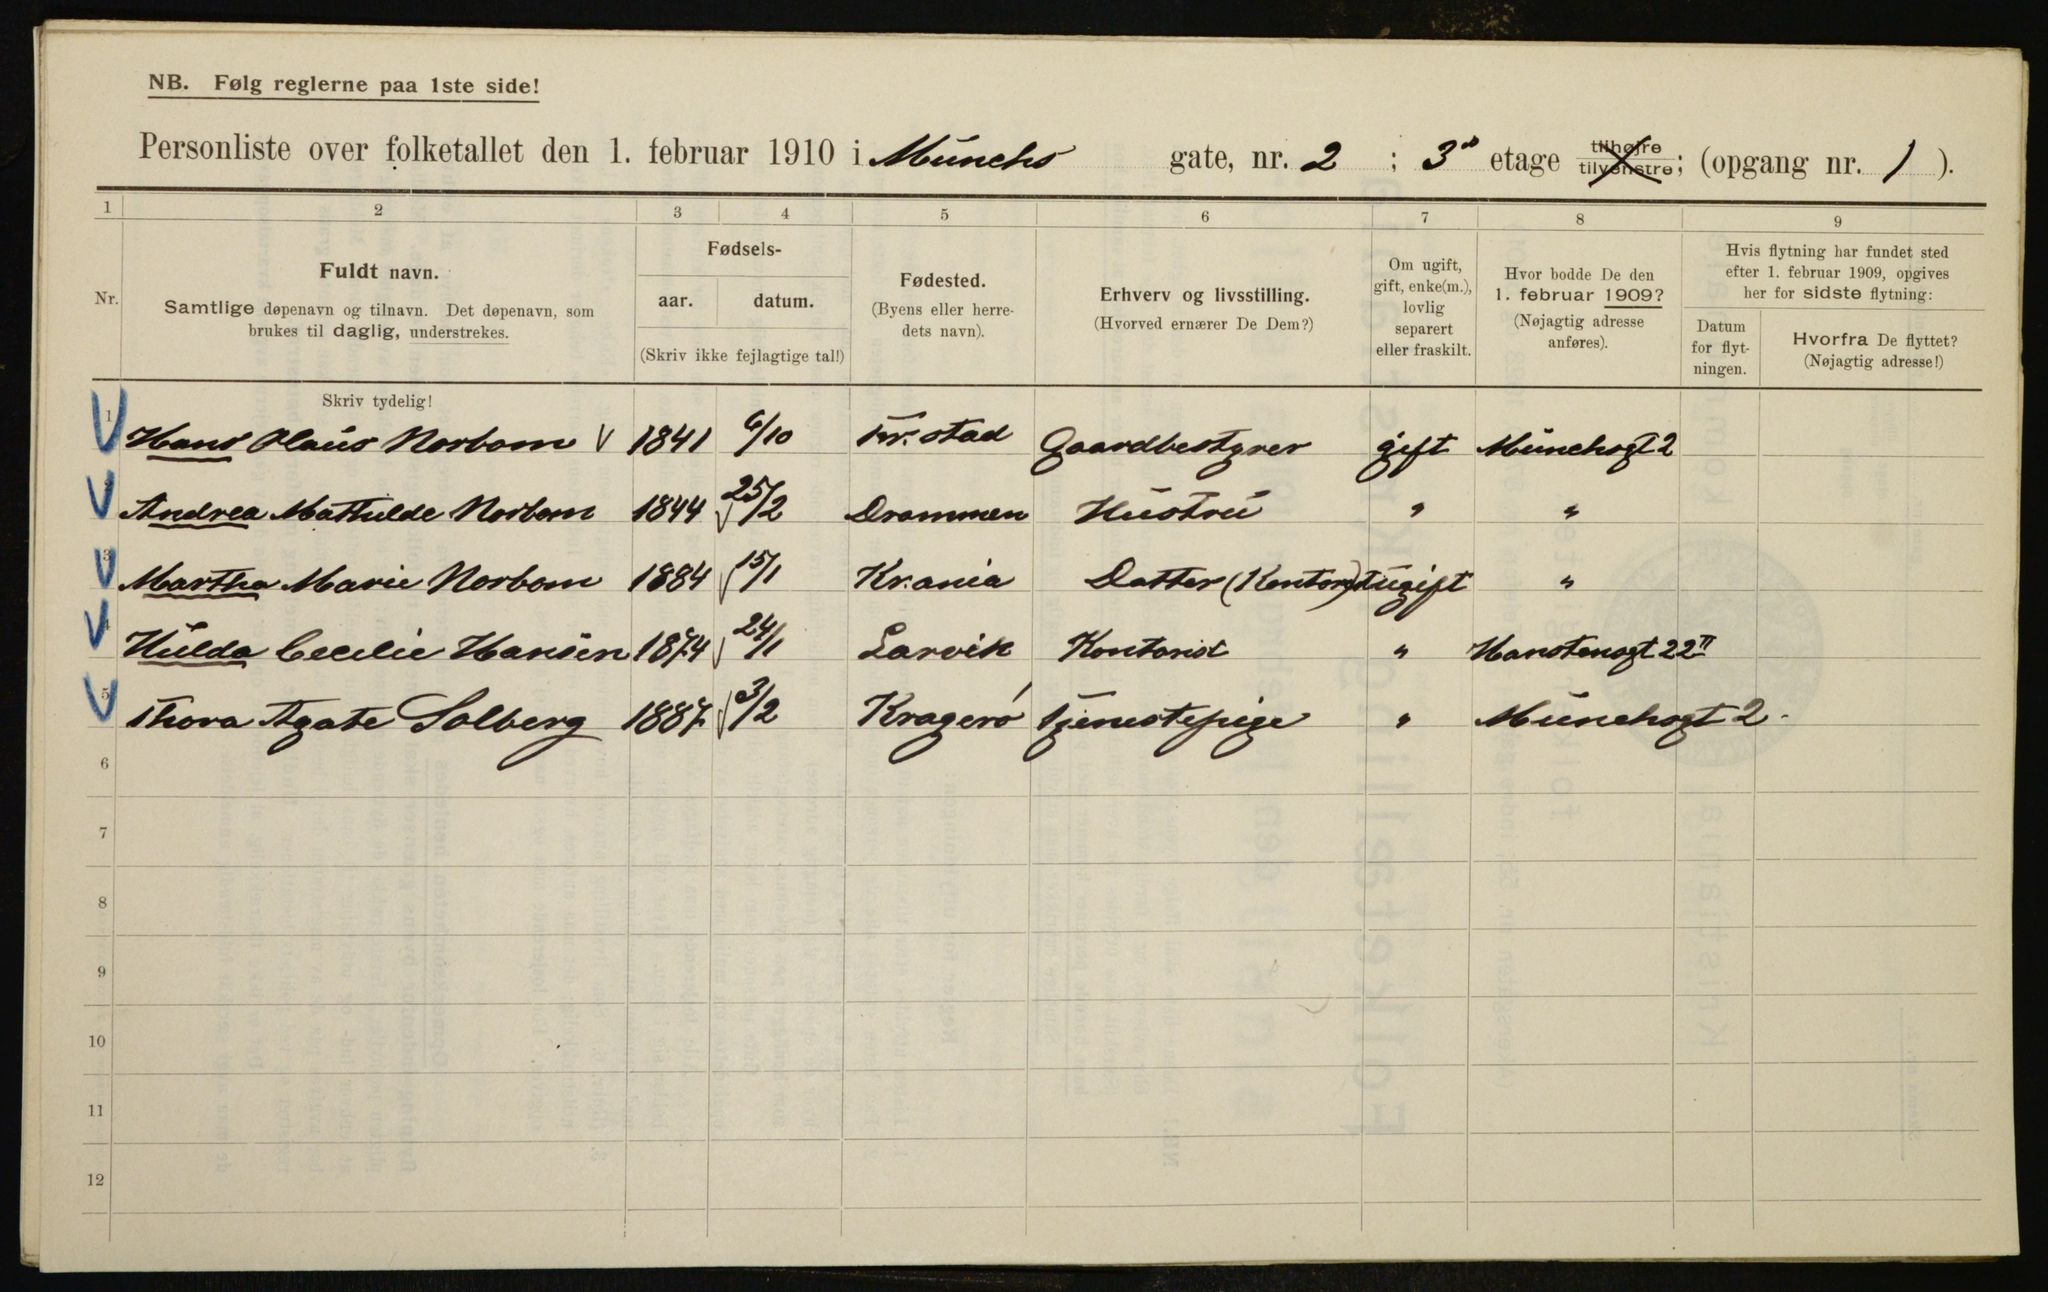 NB. Følg reglerne paa 1ste side!
Personliste over folketallet den 1. februar 1910 i Münchs gate, nr. 2 ; 3die etage tilhøjre tilvenstre; (opgang nr. 1 ).
1 2 3 4 5 6 7 8 9
Nr.
Fuldt navn.
Samtlige døpenavn og tilnavn. Det døpenavn, som
brukes til daglig, understrekes.
Fødsels-
aar. datum.
(Skriv ikke fejlagtige tal!)
Fødested.
(Byens eller herre-
dets navn).
Erhverv og livsstilling.
(Hvorved ernærer De Dem?)
Om ugift,
gift, enke(m.),
lovlig
separert
eller fraskilt.
Hvor bodde De den
1. februar 1909?
(Nøjagtig adresse
anføres).
Hvis flytning har fundet sted
efter 1. februar 1909, opgives
her for sidste flytning:
Datum
for flyt-
ningen.
Hvorfra De flyttet?
(Nøjagtig adresse!)
Skriv tydelig!
1 Hans Olaus Norbom V 1841 6/10 Fr.stad Gaardbestyrer gift Münchsgt 2
2 Andrea Mathilde Norbom 1844 25/2 Drammen Hustru " "
3 Martha Marie Norbom 1884 15/1 Kr.ania Datter (Kontorist) ugift "
4 Hulda Cecilie Hansen 1874 24/1 Larvik Kontorist " Hanstensgt 22 II
5 Thora Agate Solberg 1887 3/2 Kragerø Tjenestepige " Münchsgt 2.
6
7
8
9
10
11
12